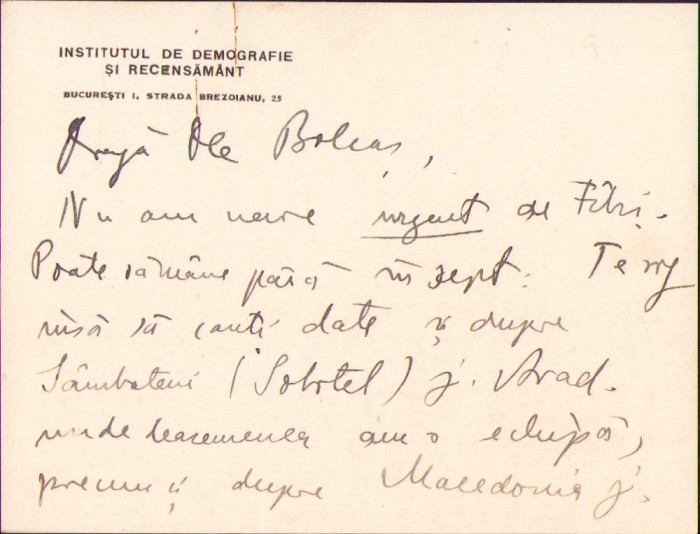 INSTITUTUL DE DEMOGRAFIE
ȘI RECENSĂMÂNT
BUCUREȘTI I, STRADA BREZOIANU, 25
Dragă Dle Bolcaș,
Nu am nevoe urgent de Fibiș.
Poate rămâne până în sept. Te rog
însă să cauți date și despre
Sâmbateni (Sobotel) j. Arad.
unde deasemenea am o echipă,
precum și despre Macedonia j.